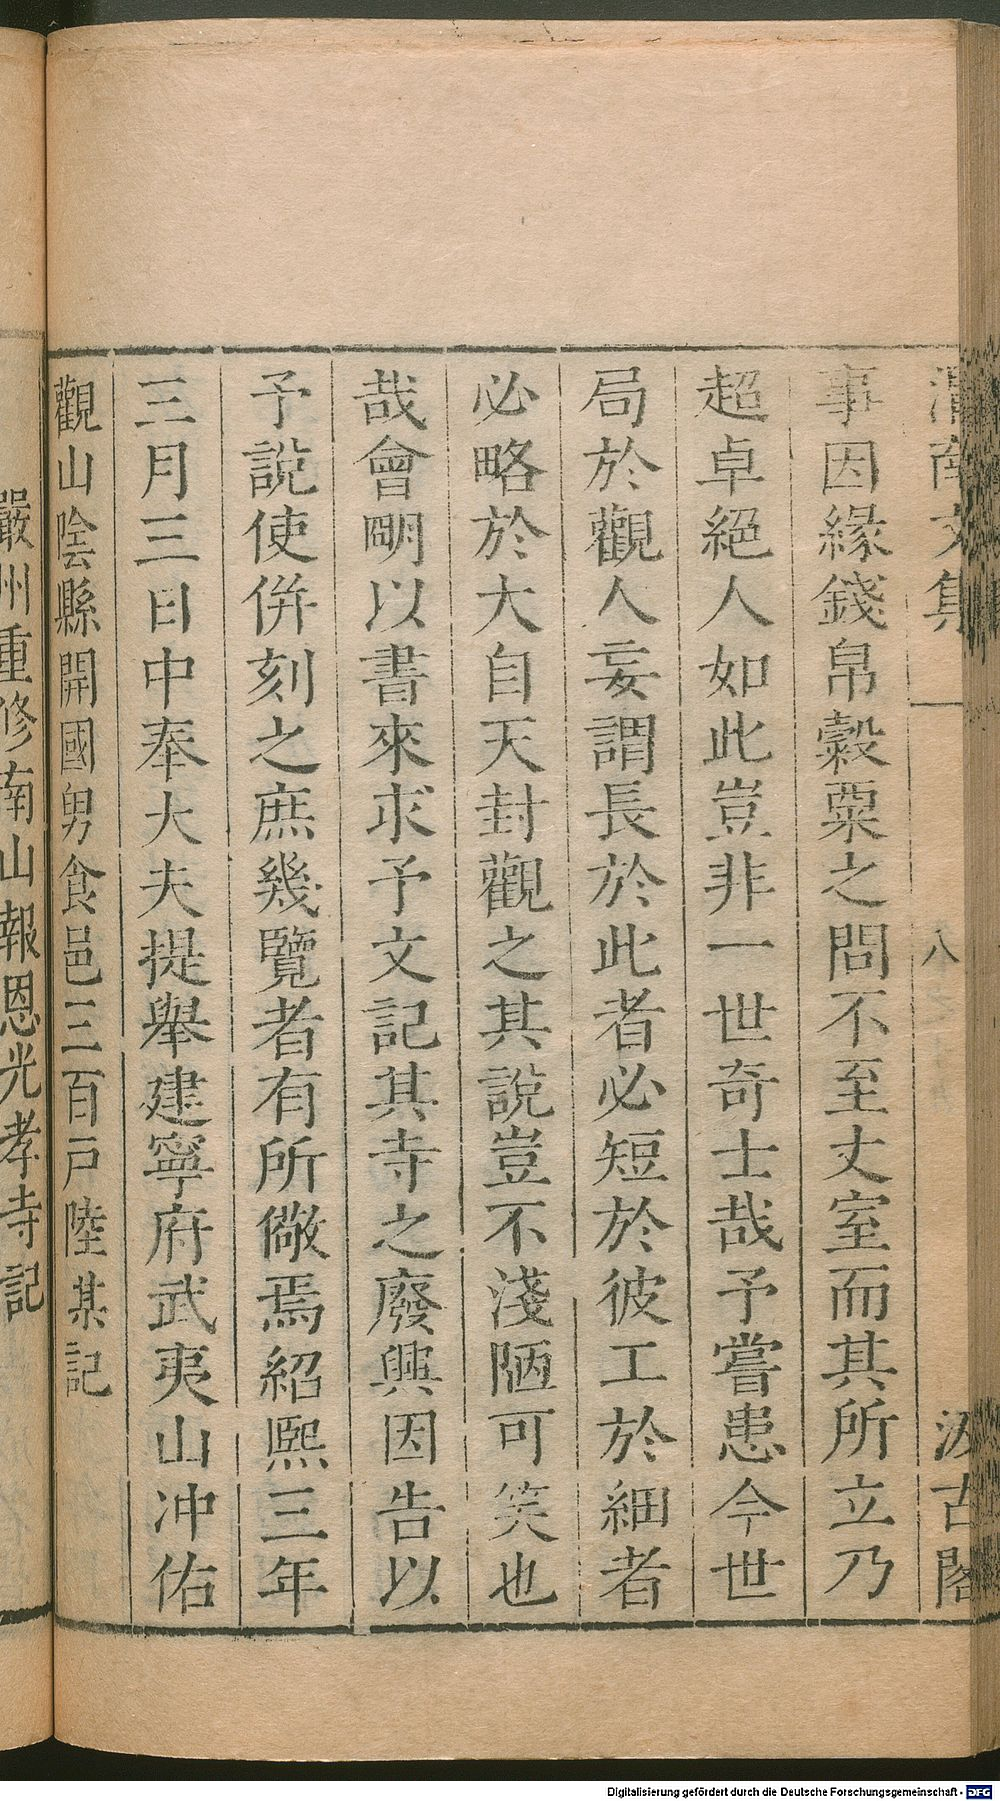 渭南文集
八
汲古閣
事因緣錢帛穀粟之問不至丈室而其所立乃
超卓絕人如此豈非一世奇士哉予嘗患今世
局於觀人妄謂長於此者必短於彼工於細者
必略於大自天封觀之其說豈不淺陋可笑也
哉會明以書來求予文記其寺之廢興因告以
予說使併刻之庶幾覽者有所儆焉紹熙三年
三月三日中奉大夫提舉建寧府武夷山冲佑
觀山陰縣開國男食邑三百戶陸某記
嚴州重修南山報恩光孝寺記
Digitalisierung gefördert durch die Deutsche Forschungsgemeinschaft - DFG